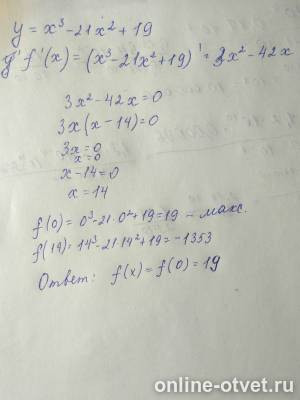 y = x³ - 21x² + 19
y' f'(x) = (x³ - 21x² + 19)' = 3x² - 42x
3x² - 42x = 0
3x(x - 14) = 0
3x = 0
x = 0
x - 14 = 0
x = 14
f(0) = 0³ - 21·0² + 19 = 19 - макс.
f(14) = 14³ - 21·14² + 19 = -1353
Ответ: f(x) = f(0) = 19
online-otvet.ru